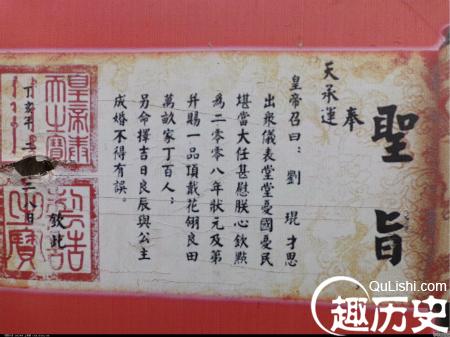 聖旨
奉
天承運
皇帝召曰：劉琨才思
出衆儀表堂堂憂國憂民
堪當大任甚慰朕心欽點
為二〇〇八年狀元及第
并賜一品頂戴花翎良田
萬畝家丁百人；
另命擇吉日良辰與公主
成婚不得有誤。
欽此
丁亥年
皇帝奉天之寶
QuLishi.com
趣历史